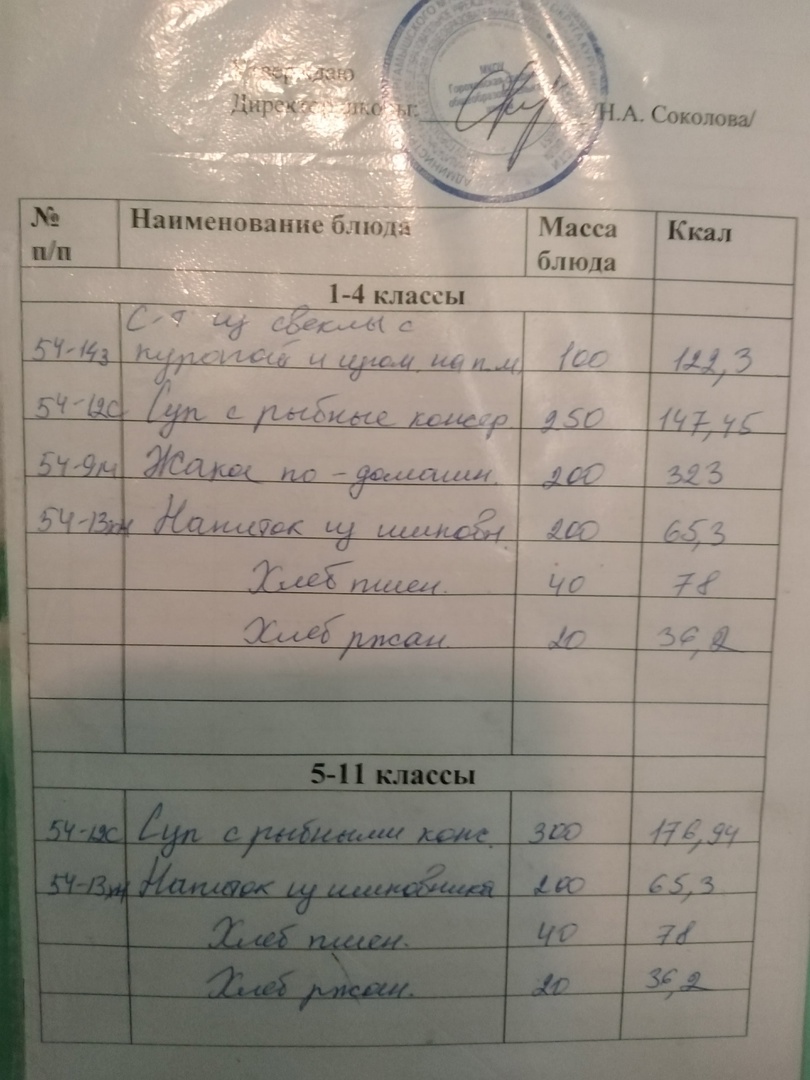 Утверждаю
Директор школы: /Н.А. Соколова/
МКОУ
№ п/п Наименование блюда Масса блюда Ккал
1-4 классы
С-т из свеклы с
54-14з курагой и изюм. на п.м. 100 122,3
54-12с Суп с рыбные консер. 250 147,45
54-9м Жакое по-домашн. 200 323
54-13хн Напиток из шиповн. 200 65,3
Хлеб пшен. 40 78
Хлеб ржан. 20 36,2
5-11 классы
54-12с Суп с рыбными конс. 300 176,94
54-13хн Напиток из шиповника 200 65,3
Хлеб пшен. 40 78
Хлеб ржан. 20 36,2